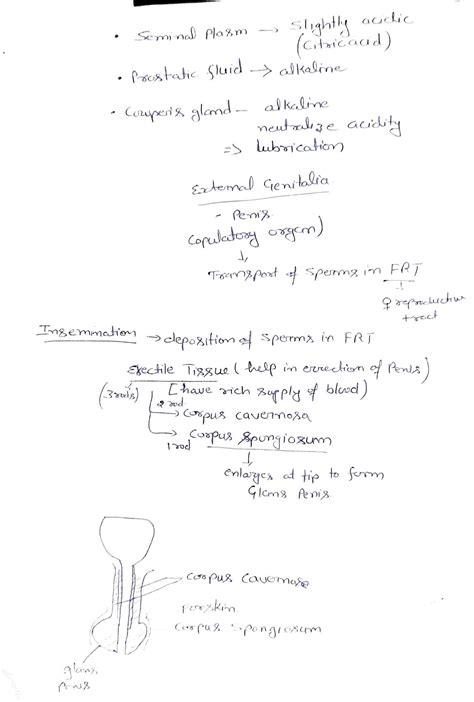 • Seminal Plasm → Slightly acidic
(Citric acid)
• Prostatic fluid → alkaline
• Cowper's gland - alkaline
neutralize acidity
=> lubrication
External Genitalia
- Penis
Copulatory organ)
↓
Transport of sperms in FRT
↓
♀ reproductive
tract
Insemmation → deposition of sperms in FRT
Erectile Tissue (help in errection of Penis)
(3 rods) [have rich supply of blood)
2 rod
→ Corpus cavernosa
→ Corpus Spongiosum
1 rod
↓
enlarges at tip to form
Glans Penis
Corpus Cavernosa
Foreskin
Corpus Spongiosum
glans
Penis